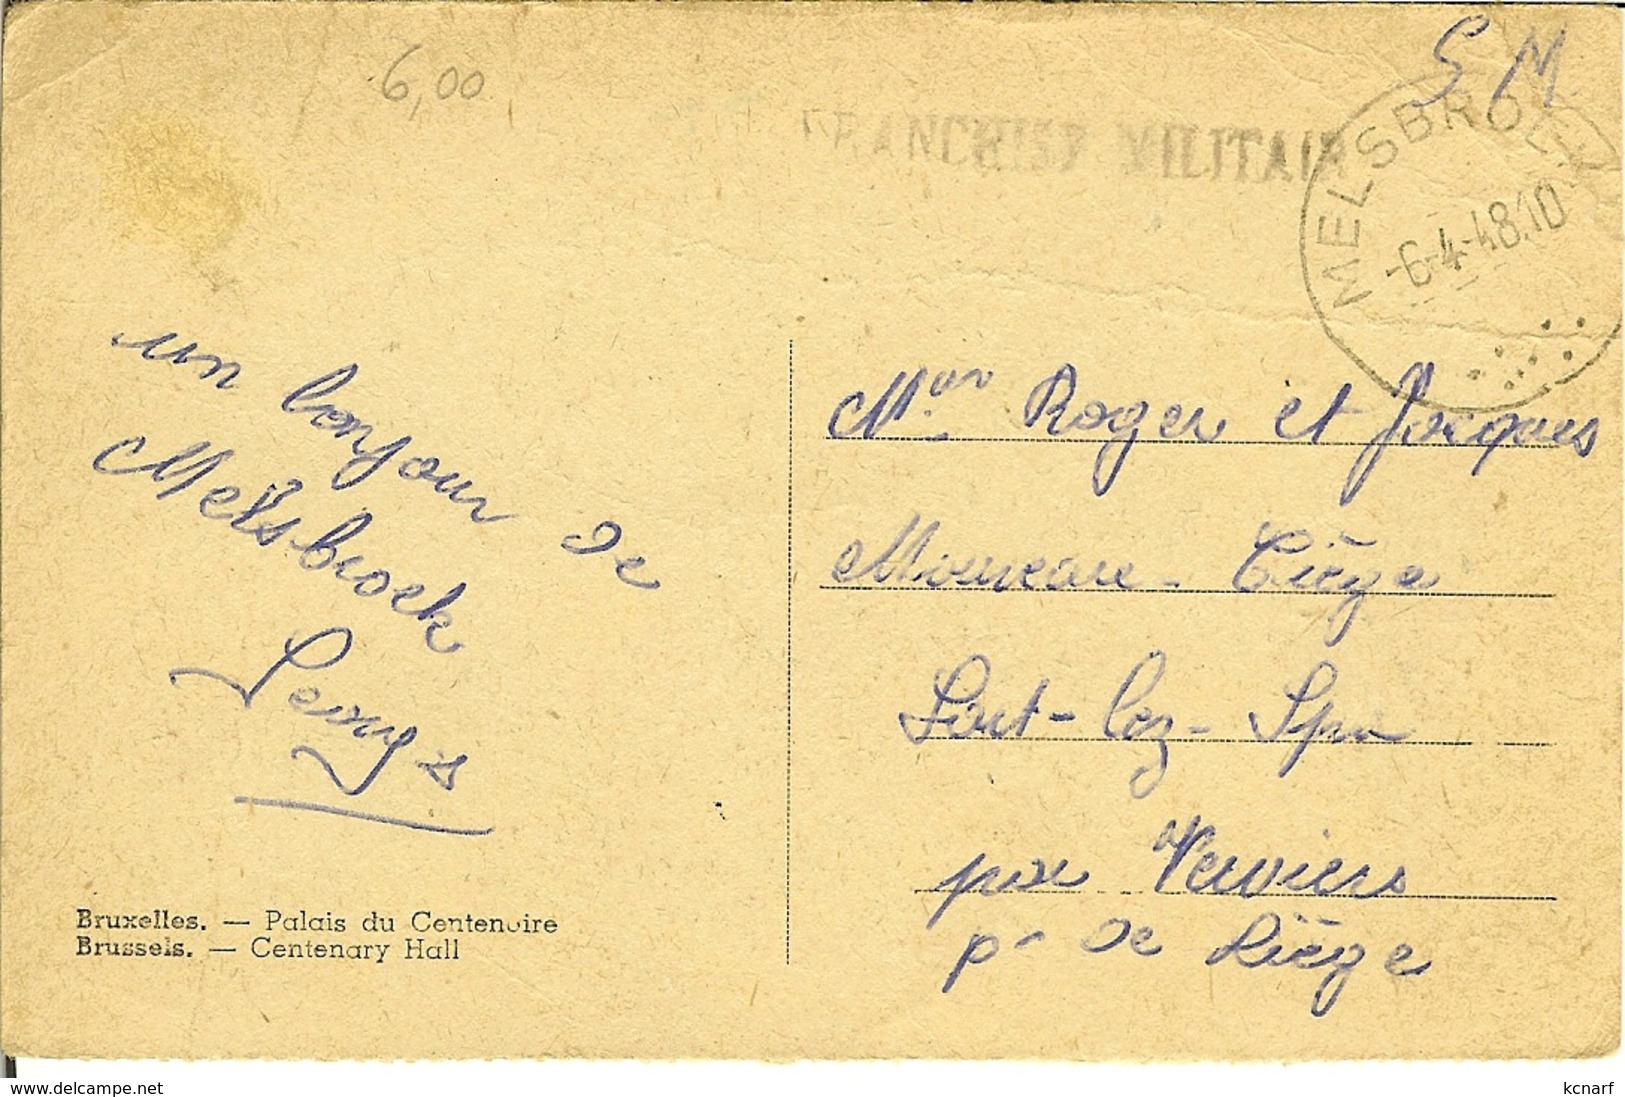 6,00
S M
FRANCHISE MILITAIR
MELSBROEK
-6-4-48.10
un bonjour de
Melsbroek
Bruxelles. — Palais du Centenaire
Brussels. — Centenary Hall
Roger et Jacques
Liège
Sart-lez-Spa
par Verviers
Pr de Liège
www.delcampe.net
kcnarf